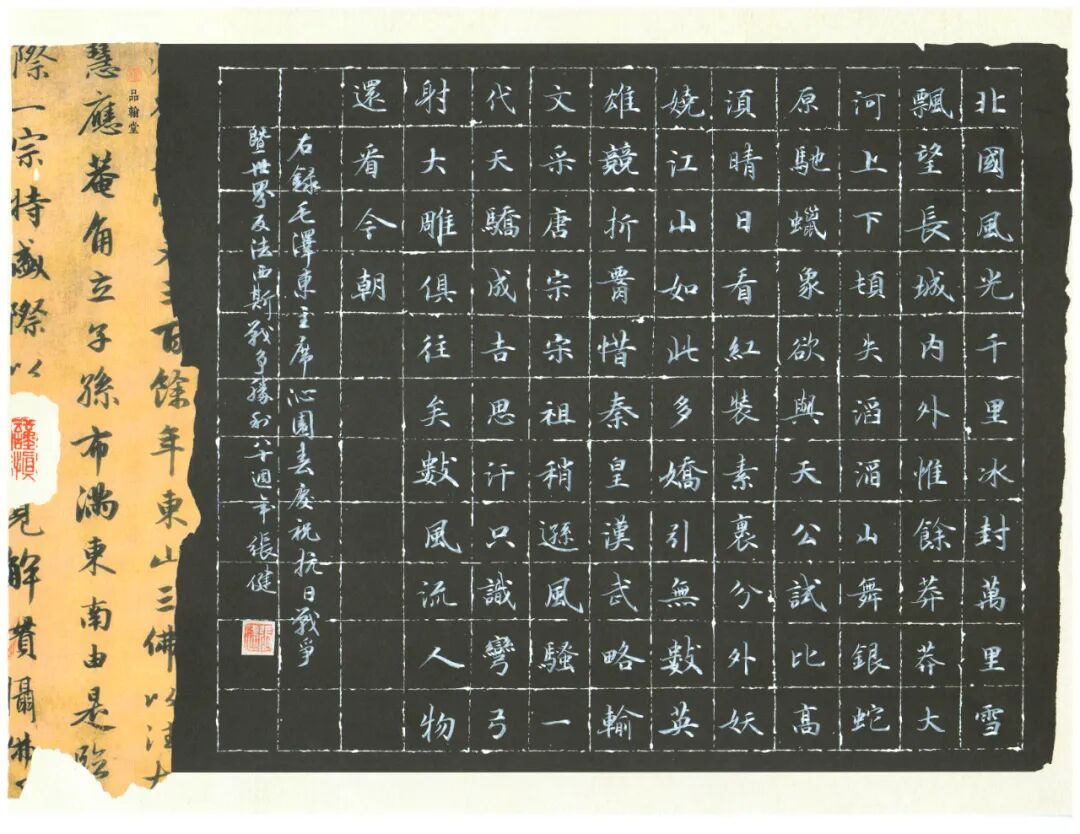 北國風光千里冰封萬里雪
飄望長城內外惟餘莽莽大
河上下頓失滔滔山舞銀蛇
原馳蠟象欲與天公試比高
須晴日看紅裝素裹分外妖
嬈江山如此多嬌引無數英
雄競折腰惜秦皇漢武略輸
文采唐宗宋祖稍遜風騷一
代天驕成吉思汗只識彎弓
射大雕俱往矣數風流人物
還看今朝
右錄毛澤東主席沁園春慶祝抗日戰爭
暨世界反法西斯戰爭勝利八十週年張健
品翰堂
三百餘年東山三佛以法
慧應菴角立子孫布滿東南由是臨
際一宗特盛際以見解貫攝佛
謹慎